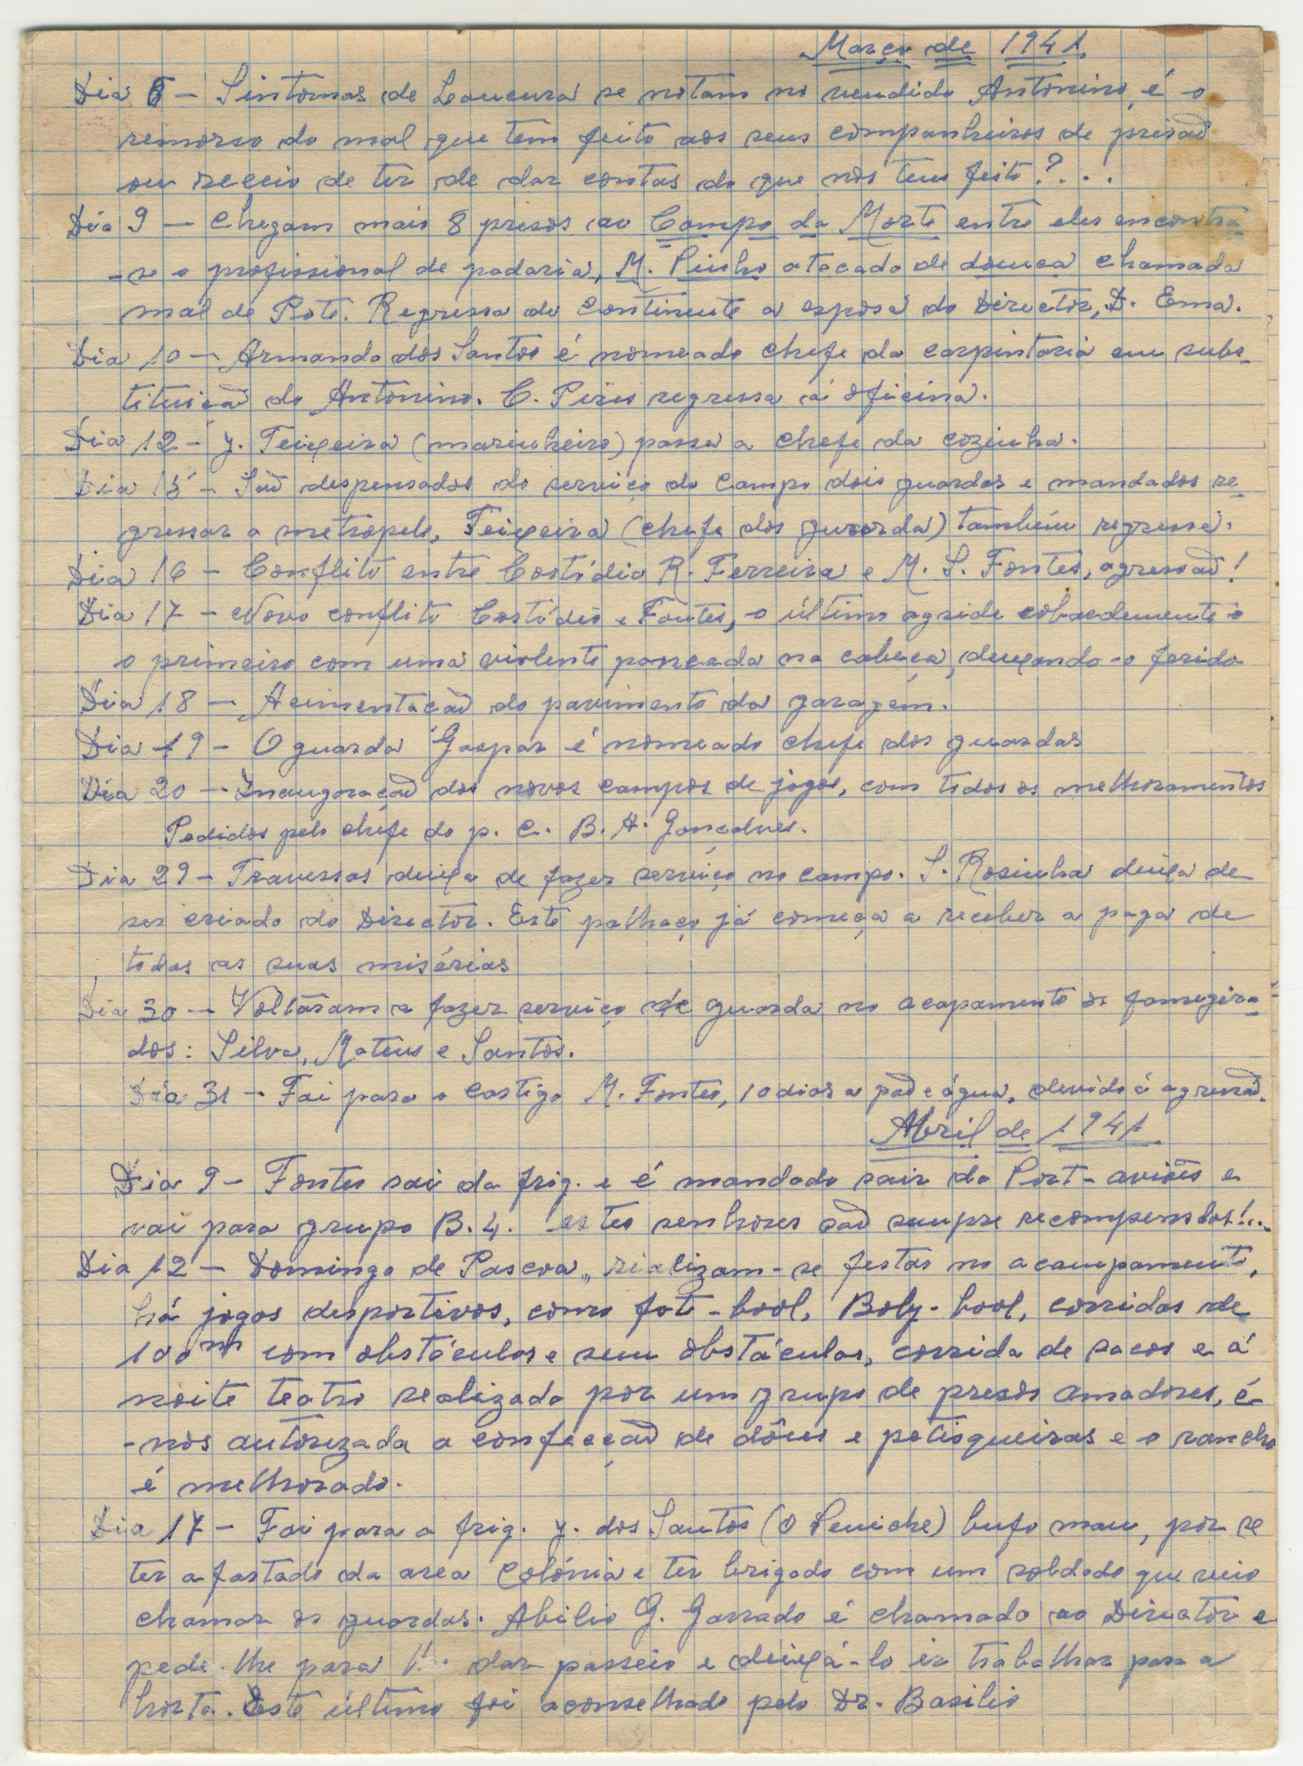 Março de 1941.
Dia 6 — Sintomas de Loucura se notam no vendido Antonino, é o
remorso do mal que tem feito aos seus companheiros de prisaõ
ou receio de ter de dar contas do que nos tem feito?...
Dia 9 — Chegam mais 8 presos ao Campo da Morte entre eles encontra
-se o profissional de padaria, M. Pinho atacado de doença chamada
mal de Pote. Regressa do Continente a esposa do Director, D. Ema.
Dia 10 — Armando dos Santos é nomeado chefe da carpintaria em subs-
tituiçaõ do Antonino. C. Pires regressa á oficina.
Dia 12 — J. Teixeira (marinheiro) passa a chefe da cozinha.
Dia 13 — Saõ despensados do serviço do Campo dois guardas e mandados re-
gressar a metropole, Teixeira (chefe dos guarda) também regressa.
Dia 16 — Conflito entre Costódio R. Ferreira e M. S. Fontes, agressaõ!
Dia 17 — Novo conflito Costódio e Fontes, o último agride cobardemente o
o primeiro com uma violente pancada na cabeça, deixando-o ferido
Dia 18 — Acimentacaõ do pavimento da garagem.
Dia 19 — O guarda Gaspar é nomeado chefe dos guardas
Dia 20 — Inauguraçaõ dos novos campos de jogos, com todos os melhoramentos
Pedidos pelo chefe do p. C. B. H. Gonçalves.
Dia 29 — Travessas deixa de fazer serviço no campo. S. Rosinha deixa de
ser criado do Director. Este palhaço já começa a receber a paga de
todas as suas misérias
Dia 30 — Voltaram a fazer serviço de guarda no acapamento os famegira-
dos: Silva, Mateus e Santos.
Dia 31 — Foi para o castigo M. Fontes, 10 dias a paõ e água, devido á agressaõ.
Abril de 1941
Dia 9 — Fontes sai da frig. e é mandado sair do Port-aviões e
vai para grupo B.4. estes senhores saõ sempre recompensdos!...
Dia 12 — Domingo de Pascoa, rializam-se festas no acampamento,
há jogos desportivos, como fot-bool, Boly-bool, corridas de
100m com obstáculos e sem obstáculos, corrida de sacos e á
noite teatro realizado por um grupo de presos amadores, é-
-nos autorizada a confecçaõ de dôces e petisqueiras e o rancho
é melhorado.
Dia 17 — Foi para a frig. J. dos Santos (O Peniche) bufo mau, por se
ter afastado da area Colónia e ter brigado com um soldado que veio
chamar os guardas. Abilio G. Garrado é chamado ao Director e
pede-lhe para dar passeio e deixá-lo ir trabalhar para a
horta. Este último foi aconselhado pelo Dr. Basilio